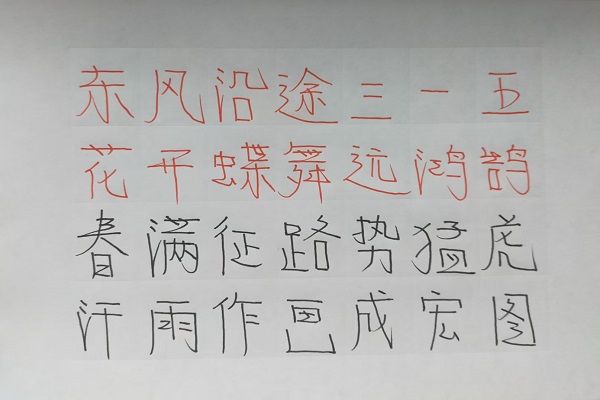 东风沿途三一五
花开蝶舞远鸿鹄
春满征路势猛虎
汗雨作画成宏图